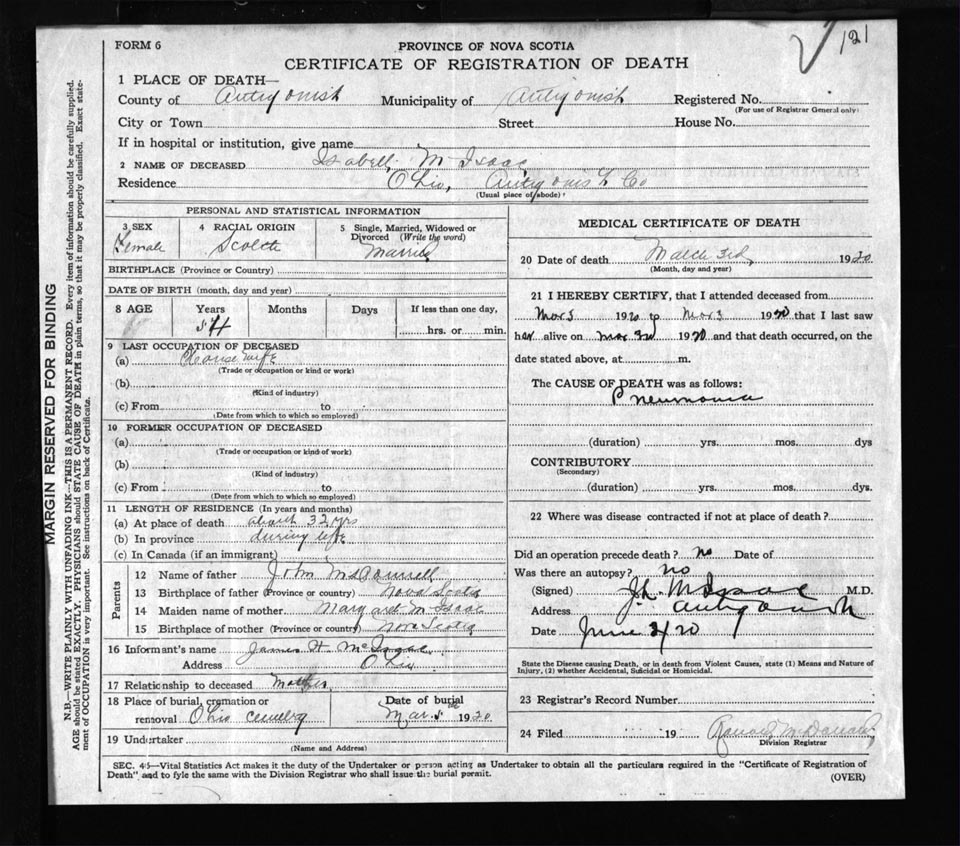 121
FORM 6
PROVINCE OF NOVA SCOTIA
CERTIFICATE OF REGISTRATION OF DEATH
1 PLACE OF DEATH—
County of Antigonish Municipality of Antigonish Registered No.
(For use of Registrar General only)
City or Town Street House No.
If in hospital or institution, give name
2 NAME OF DECEASED Isabell McIsaac
Residence Ohio, Antigonish Co
(Usual place of abode)
PERSONAL AND STATISTICAL INFORMATION
3 SEX Female
4 RACIAL ORIGIN Scotch
5 Single, Married, Widowed or Divorced (Write the word) Married
BIRTHPLACE (Province or Country)
DATE OF BIRTH (month, day and year)
8 AGE Years Months Days If less than one day,
54 hrs. or min.
9 LAST OCCUPATION OF DECEASED
(a) House wife
(Trade or occupation or kind or work)
(b)
(Kind of industry)
(c) From to
(Date from which to which so employed)
10 FORMER OCCUPATION OF DECEASED
(a)
(Trade or occupation or kind of work)
(b)
(Kind of industry)
(c) From to
(Date from which to which so employed)
11 LENGTH OF RESIDENCE (In years and months)
(a) At place of death about 32 yrs
(b) In province during life
(c) In Canada (if an immigrant)
Parents
12 Name of father John
13 Birthplace of father (Province or country) Nova Scotia
14 Maiden name of mother Margaret McIsaac
15 Birthplace of mother (Province or country) Nova Scotia
16 Informant's name James H McIsaac
Address Ohio
17 Relationship to deceased
18 Place of burial, cremation or removal Ohio cemetry
Date of burial Mar. 5 1920
19 Undertaker
(Name and Address)
MEDICAL CERTIFICATE OF DEATH
20 Date of death March 3rd, 1920
(Month, day and year)
21 I HEREBY CERTIFY, that I attended deceased from
Mar 3 1920 to Mar 3 1920 that I last saw
her alive on Mar 3rd 1920 and that death occurred, on the
date stated above, at m.
The CAUSE OF DEATH was as follows:
Pneumonia
(duration) yrs. mos. dys
CONTRIBUTORY
(Secondary)
(duration) yrs. mos. dys.
22 Where was disease contracted if not at place of death?
Did an operation precede death? no Date of
Was there an autopsy? no
(Signed) J.L. McIsaac M.D.
Address Antigonish
Date June 3/20
State the Disease causing Death, or in death from Violent Causes, state (1) Means and Nature of
Injury, (2) whether Accidental, Suicidal or Homicidal.
23 Registrar's Record Number
24 Filed 19
Division Registrar
SEC. 45—Vital Statistics Act makes it the duty of the Undertaker or person acting as Undertaker to obtain all the particulars required in the "Certificate of Registration of
Death" and to fyle the same with the Division Registrar who shall issue the burial permit.
(OVER)
MARGIN RESERVED FOR BINDING
N.B.—WRITE PLAINLY WITH UNFADING INK—THIS IS A PERMANENT RECORD. Every item of information should be carefully supplied.
AGE should be stated EXACTLY. PHYSICIANS should STATE CAUSE OF DEATH in plain terms, so that it may be properly classified. Exact state-
ment of OCCUPATION is very important. See instructions on back of Certificate.